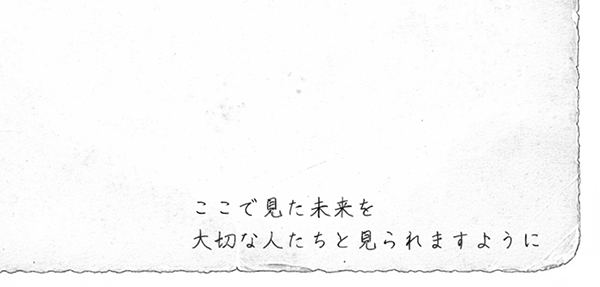 ここで見た未来を
大切な人たちと見られますように